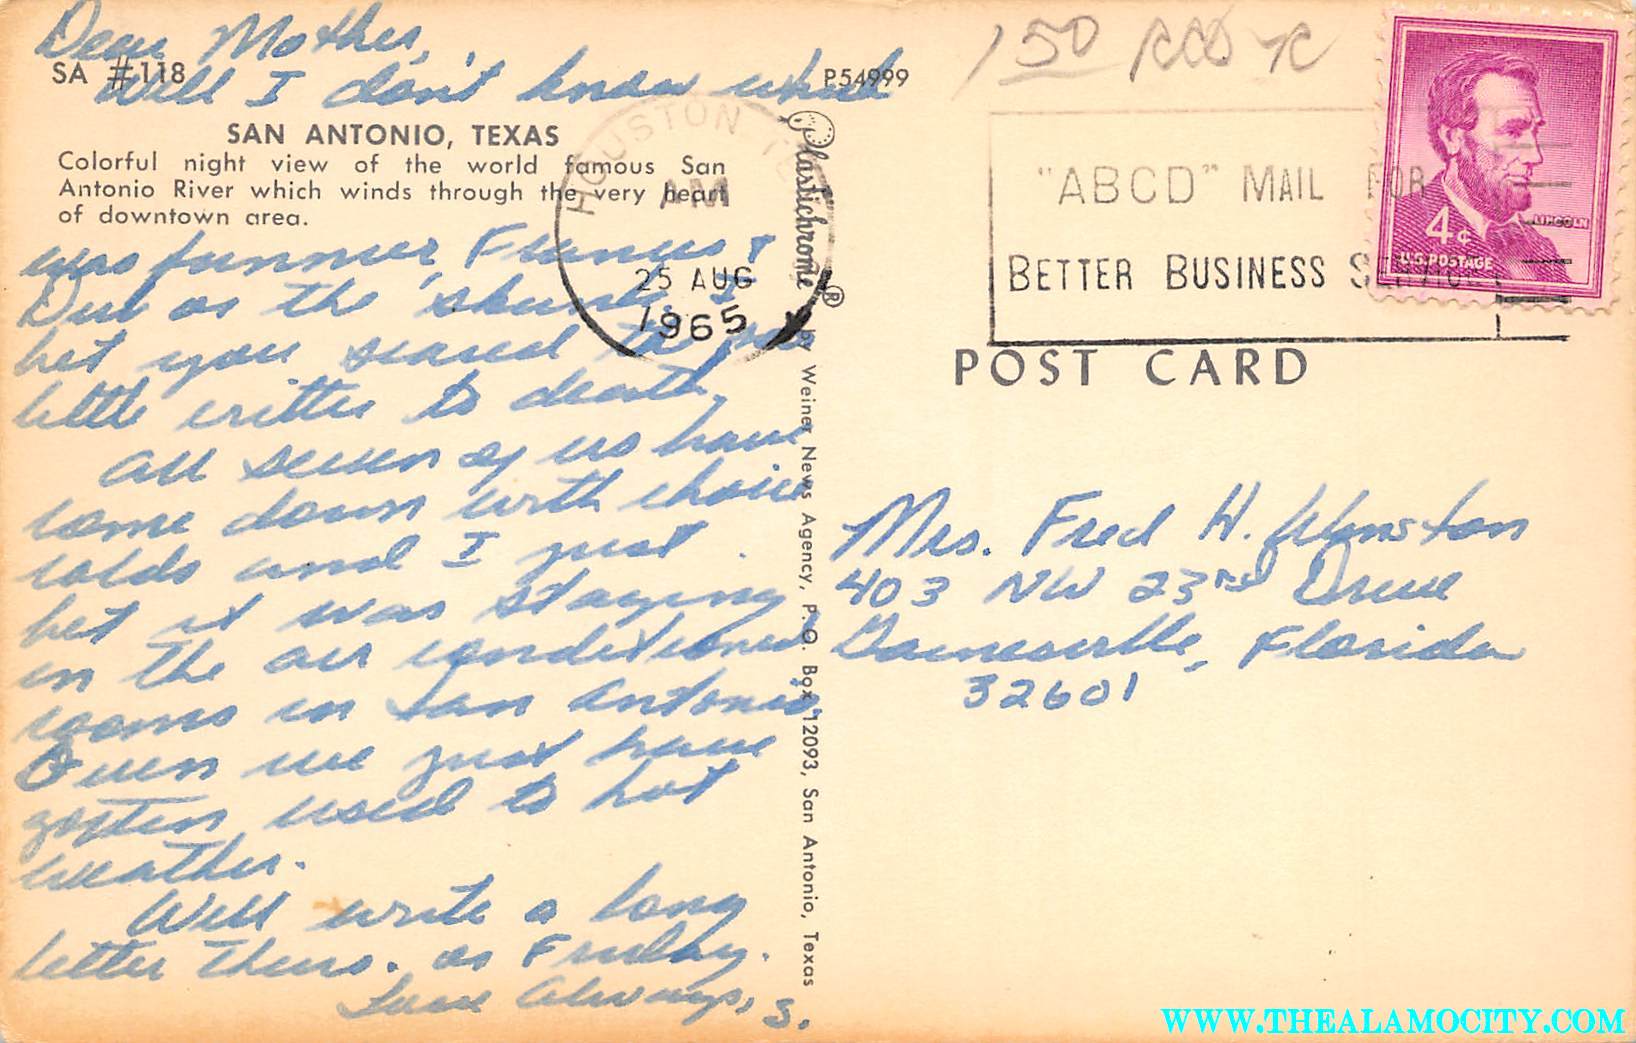 Dear Mother,
SA #118
Well I don't know which
SAN ANTONIO, TEXAS
Colorful night view of the world famous San
Antonio River which winds through the very heart
of downtown area.
was funnier,
as the skunk. I
bet you scared the poor
little critter to death.
All seven of us have
come down with choice
colds and I just
bet it was staying
in the air conditioned
rooms in San Antonio.
Guen we just have
gotten used to hot
weather.
Will write a long
letter Thurs. or Friday.
Love Always, S.
P54999
Plastichrome ® by Weiner News Agency, P. O. Box 12093, San Antonio, Texas
HOUSTON
AM
25 AUG
1965
150
"ABCD" MAIL FOR
BETTER BUSINESS SERVICE
LINCOLN
4¢
U.S. POSTAGE
POST CARD
Mrs. Fred H. Winston
403 NW 23rd Drive
Gainesville, Florida
32601
WWW.THEALAMOCITY.COM